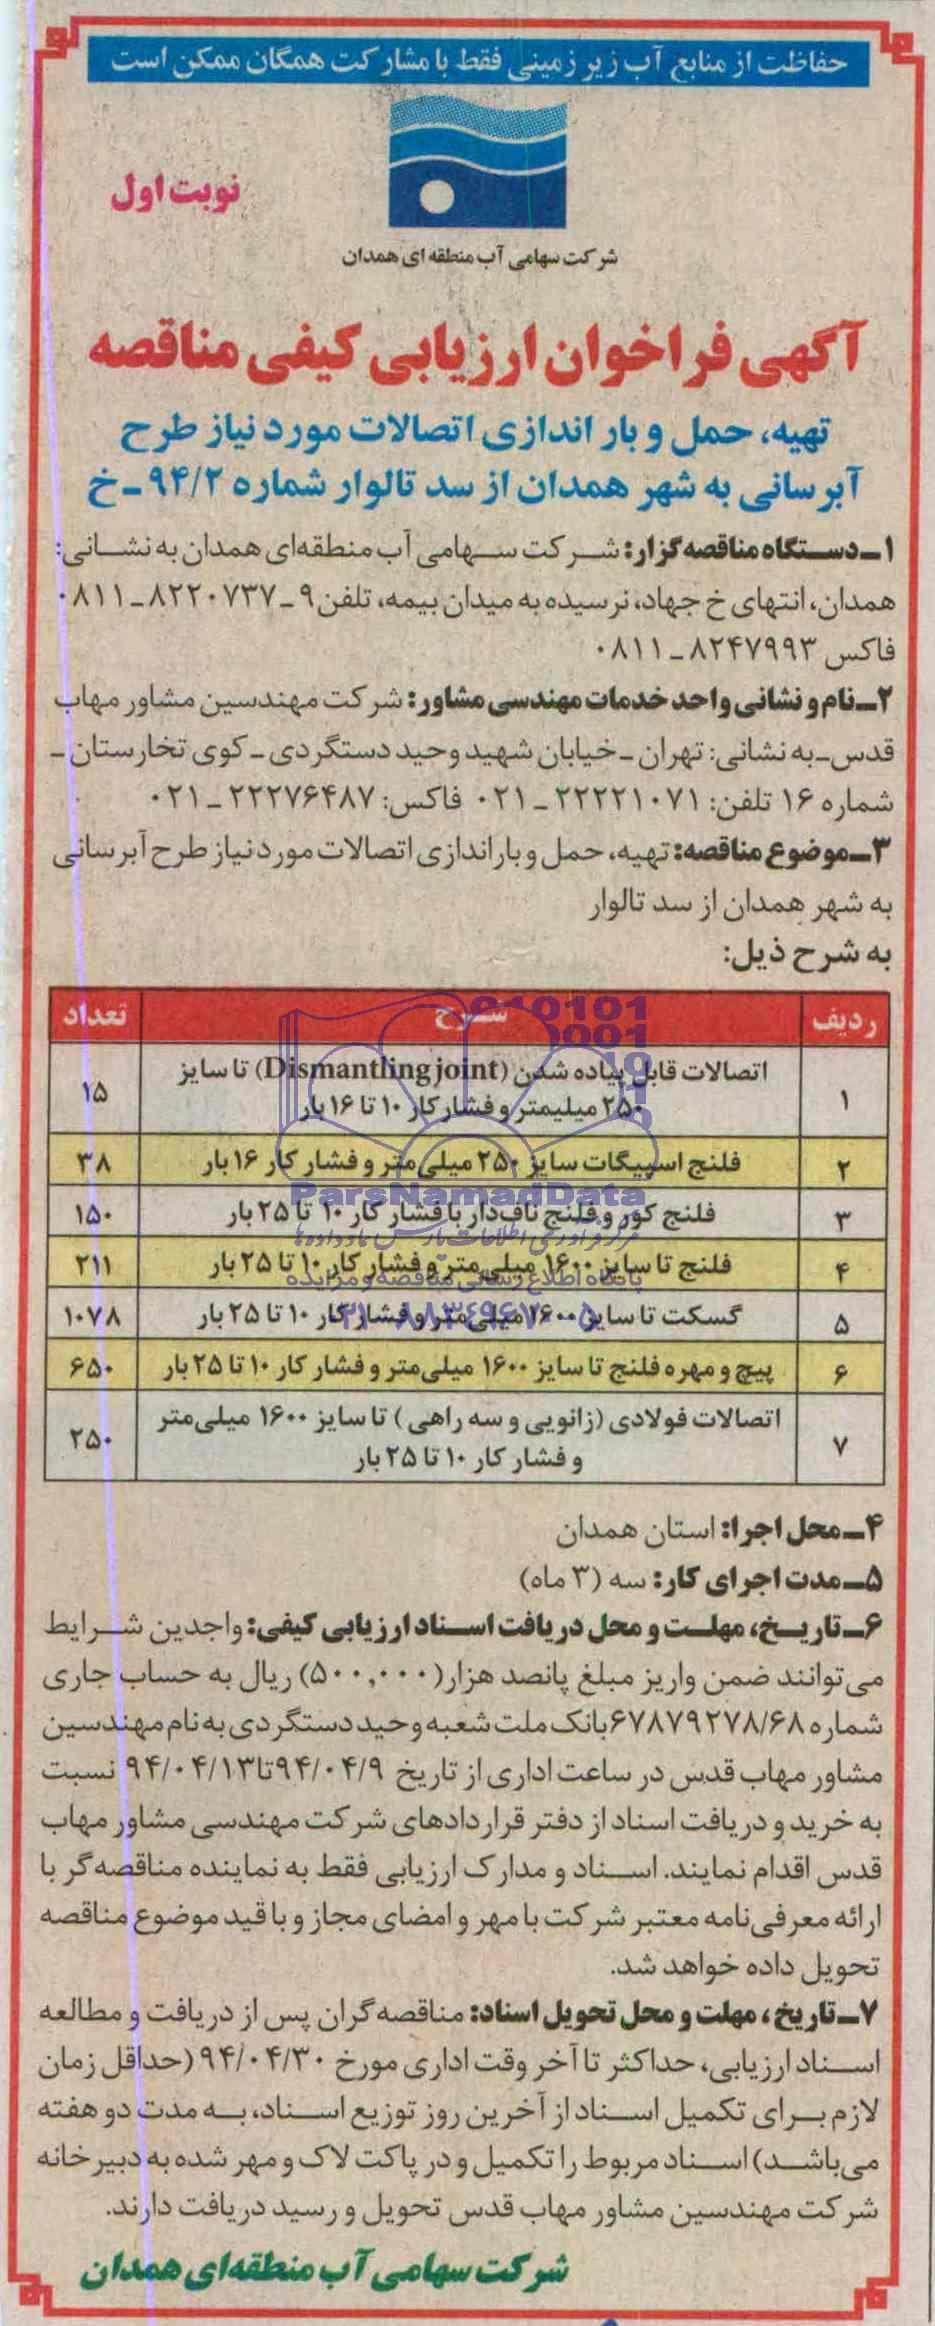 حفاظت از منابع آب زیرزمینی فقط با مشارکت همگان ممکن است
نوبت اول
شرکت سهامی آب منطقه ای همدان
آگهی فراخوان ارزیابی کیفی مناقصه
تهیه، حمل و بار اندازی اتصالات مورد نیاز طرح
آبرسانی به شهر همدان از سد تالوار شماره ۹۴/۲ ـ خ
۱ـ دستگاه مناقصه گزار: شرکت سهامی آب منطقه‌ای همدان به نشانی:
همدان، انتهای خ جهاد، نرسیده به میدان بیمه، تلفن ۹ ـ ۸۲۲۰۷۳۷ ـ ۰۸۱۱
فاکس ۸۲۴۷۹۹۳ ـ ۰۸۱۱
۲ـ نام و نشانی واحد خدمات مهندسی مشاور: شرکت مهندسین مشاور مهاب
قدس ـ به نشانی: تهران ـ خیابان شهید وحید دستگردی ـ کوی تخارستان ـ
شماره ۱۶ تلفن: ۲۲۲۲۱۰۷۱ ـ ۰۲۱ فاکس: ۲۲۲۷۶۴۸۷ ـ ۰۲۱
۳ـ موضوع مناقصه: تهیه، حمل و باراندازی اتصالات مورد نیاز طرح آبرسانی
به شهر همدان از سد تالوار
به شرح ذیل:
ردیف شرح تعداد
۱ اتصالات قابل پیاده شدن (Dismantling joint) تا سایز
۲۵۰ میلیمتر و فشار کار ۱۰ تا ۱۶ بار ۱۵
۲ فلنج اسپیگات سایز ۲۵۰ میلی‌متر و فشار کار ۱۶ بار ۳۸
۳ فلنج کور و فلنج ناف‌دار با فشار کار ۱۰ تا ۲۵ بار ۱۵۰
۴ فلنج تا سایز ۱۶۰۰ میلی‌متر و فشار کار ۱۰ تا ۲۵ بار ۲۱۱
۵ گسکت تا سایز ۱۶۰۰ میلی‌متر و فشار کار ۱۰ تا ۲۵ بار ۱۰۷۸
۶ پیچ و مهره فلنج تا سایز ۱۶۰۰ میلی‌متر و فشار کار ۱۰ تا ۲۵ بار ۶۵۰
۷ اتصالات فولادی (زانویی و سه راهی) تا سایز ۱۶۰۰ میلی‌متر
و فشار کار ۱۰ تا ۲۵ بار ۲۵۰
ParsNamadData
مرکز فرآوری اطلاعات پارس نماد داده‌ها
پایگاه اطلاع رسانی مناقصه و مزایده
۴ـ محل اجرا: استان همدان
۵ـ مدت اجرای کار: سه (۳ ماه)
۶ـ تاریخ، مهلت و محل دریافت اسناد ارزیابی کیفی: واجدین شرایط
می‌توانند ضمن واریز مبلغ پانصد هزار (۵۰۰,۰۰۰) ریال به حساب جاری
شماره ۶۷۸۷۹۲۷۸/۶۸ بانک ملت شعبه وحید دستگردی به نام مهندسین
مشاور مهاب قدس در ساعت اداری از تاریخ ۹۴/۰۴/۹ تا ۹۴/۰۴/۱۳ نسبت
به خرید و دریافت اسناد از دفتر قراردادهای شرکت مهندسی مشاور مهاب
قدس اقدام نمایند. اسناد و مدارک ارزیابی فقط به نماینده مناقصه‌گر با
ارائه معرفی‌نامه معتبر شرکت با مهر و امضای مجاز و با قید موضوع مناقصه
تحویل داده خواهد شد.
۷ـ تاریخ، مهلت و محل تحویل اسناد: مناقصه‌گران پس از دریافت و مطالعه
اسناد ارزیابی، حداکثر تا آخر وقت اداری مورخ ۹۴/۰۴/۳۰ (حداقل زمان
لازم برای تکمیل اسناد از آخرین روز توزیع اسناد، به مدت دو هفته
می‌باشد) اسناد مربوط را تکمیل و در پاکت لاک و مهر شده به دبیرخانه
شرکت مهندسین مشاور مهاب قدس تحویل و رسید دریافت دارند.
شرکت سهامی آب منطقه‌ای همدان